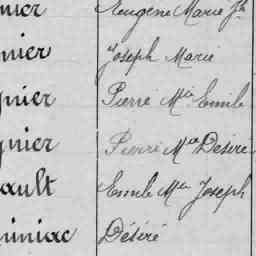 nier Eugène Marie Jh
nier Joseph Marie
nier Pierre Mie Emile
nier Pierre Mie Désiré
ault Emile Mie Joseph
iniac Désiré